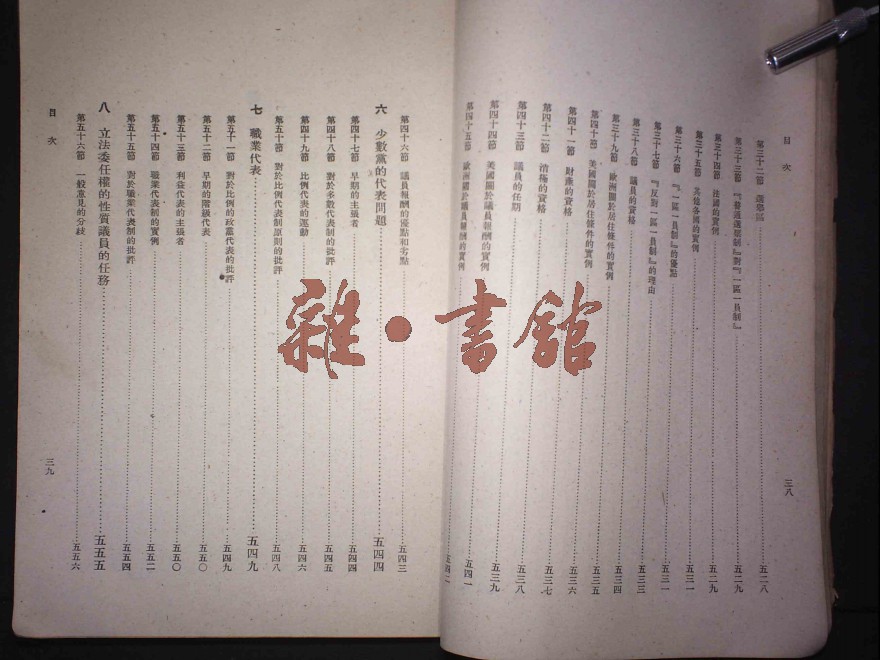 目次
三八
第三十二節 選舉區 五二八
第三十三節 『普通選舉制』對『一區一員制』 五二九
第三十四節 法國的實例 五二九
第三十五節 其他各國的實例 五三一
第三十六節 『一區一員制』的優點 五三一
第三十七節 『反對一區一員制』的理由 五三三
第三十八節 議員的資格 五三三
第三十九節 歐洲關於居住條件的實例 五三四
第四十節 美國關於居住條件的實例 五三五
第四十一節 財產的資格 五三六
第四十二節 的資格 五三七
第四十三節 議員的任期 五三八
第四十四節 美國關於議員報酬的實例 五三九
第四十五節 歐洲關於議員報酬的實例 五四一
五四二
第四十六節 議員報酬的優點和劣點 五四三
六 少數黨的代表問題 五四四
第四十七節 早期的主張者 五四四
第四十八節 對於多數代表制的批評 五四五
第四十九節 比例代表的運動 五四六
第五十節 對於比例代表制原則的批評 五四八
七 職業代表 五四九
第五十一節 對於比例的政黨代表的批評 五四九
第五十二節 早期的階級代表 五五〇
第五十三節 利益代表的主張者 五五〇
第五十四節 職業代表制的實例 五五二
第五十五節 對於職業代表制的批評 五五四
八 立法委任權的性質議員的任務 五五五
第五十六節 一般意見的分歧 五五六
目次
三九
雜·書館